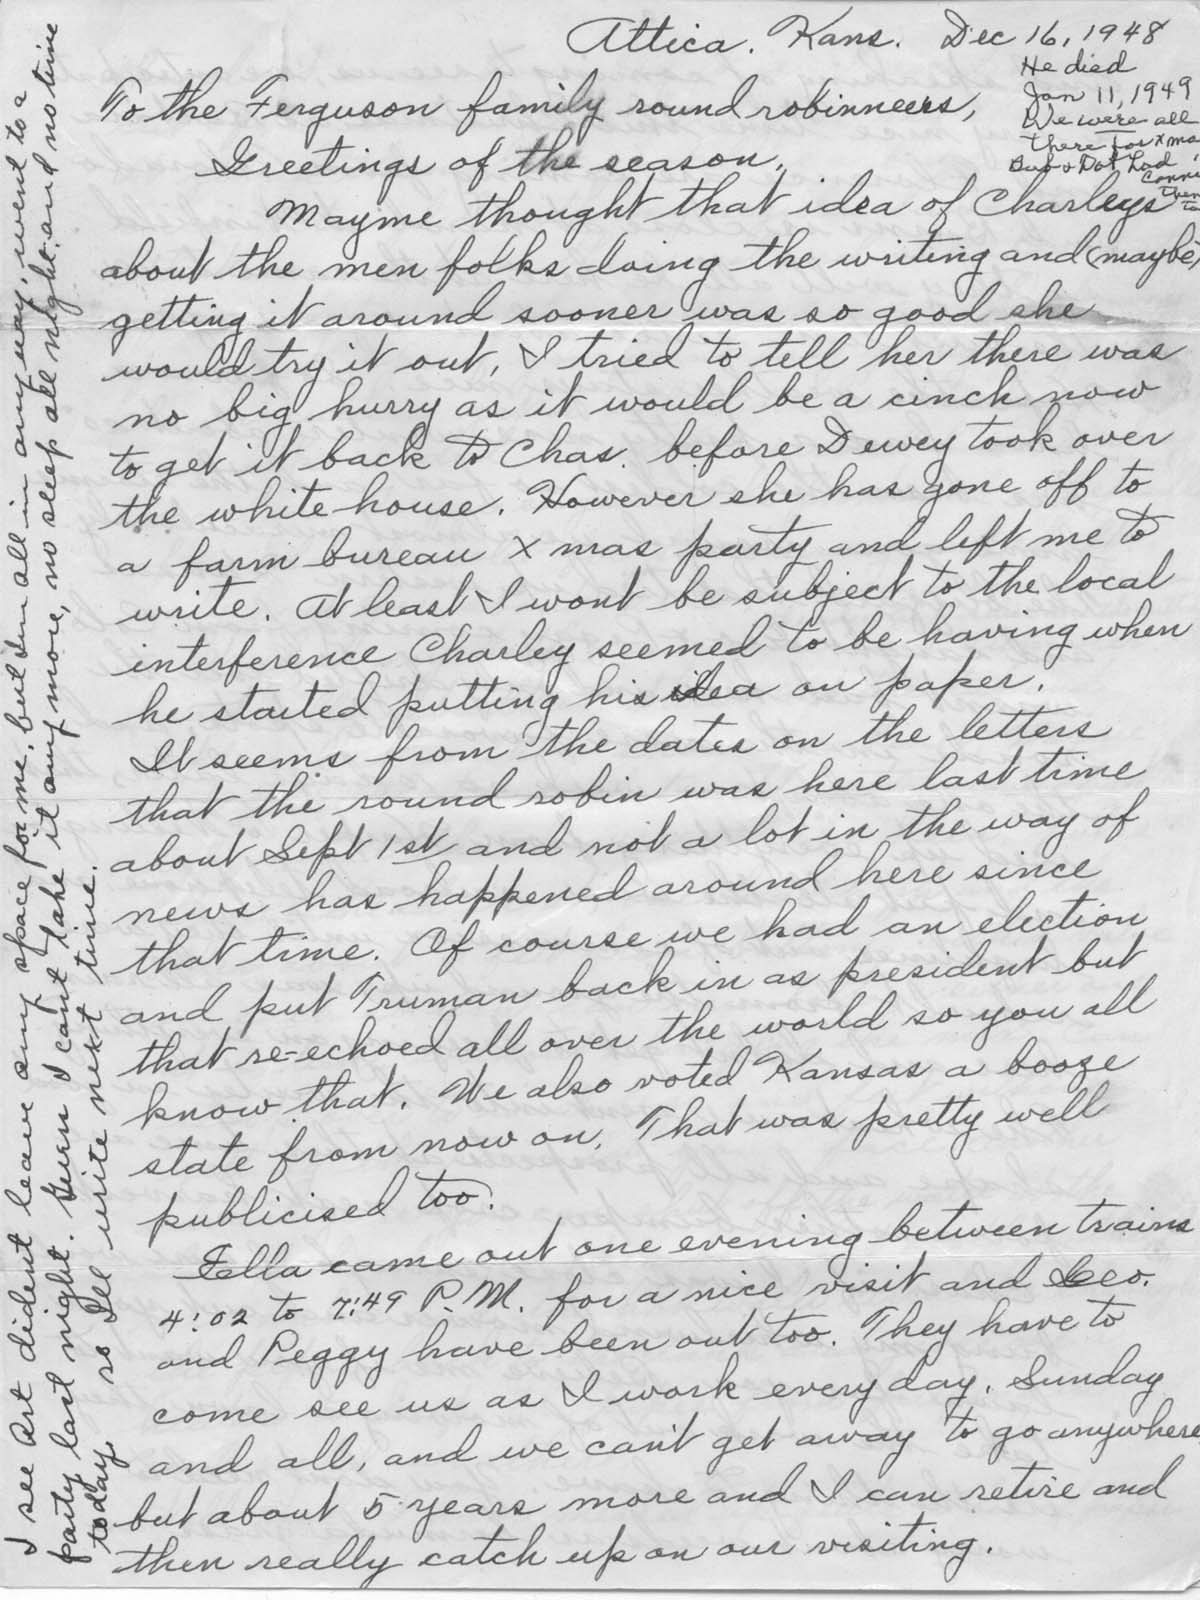 Attica. Kans. Dec 16, 1948
He died
Jan 11, 1949
We were all
there for xmas
Bub & Dot had
Connie
then
To the Ferguson family round robinneers,
Greetings of the season.
Mayme thought that idea of Charleys
about the men folks doing the writing and (maybe)
getting it around sooner was so good she
would try it out. I tried to tell her there was
no big hurry as it would be a cinch now
to get it back to Chas. before Dewey took over
the white house. However she has gone off to
a farm bureau x mas party and left me to
write. At least I wont be subject to the local
interference Charley seemed to be having when
he started putting his idea on paper.
It seems from the dates on the letters
that the round robin was here last time
about Sept 1st and not a lot in the way of
news has happened around here since
that time. Of course we had an election
and put Truman back in as president but
that re-echoed all over the world so you all
know that. We also voted Kansas a booze
state from now on. That was pretty well
publicised too.
Fella came out one evening between trains
4:02 to 7:49 P.M. for a nice visit and Geo.
and Peggy have been out too. They have to
come see us as I work every day, Sunday
and all, and we can't get away to go anywhere
but about 5 years more and I can retire and
then really catch up on our visiting.
I see Art dident leave any space for me, but Im all in any way, went to a
party last night. Guess I cant take it any more, no sleep all night and no time
today. so Ill write next time.